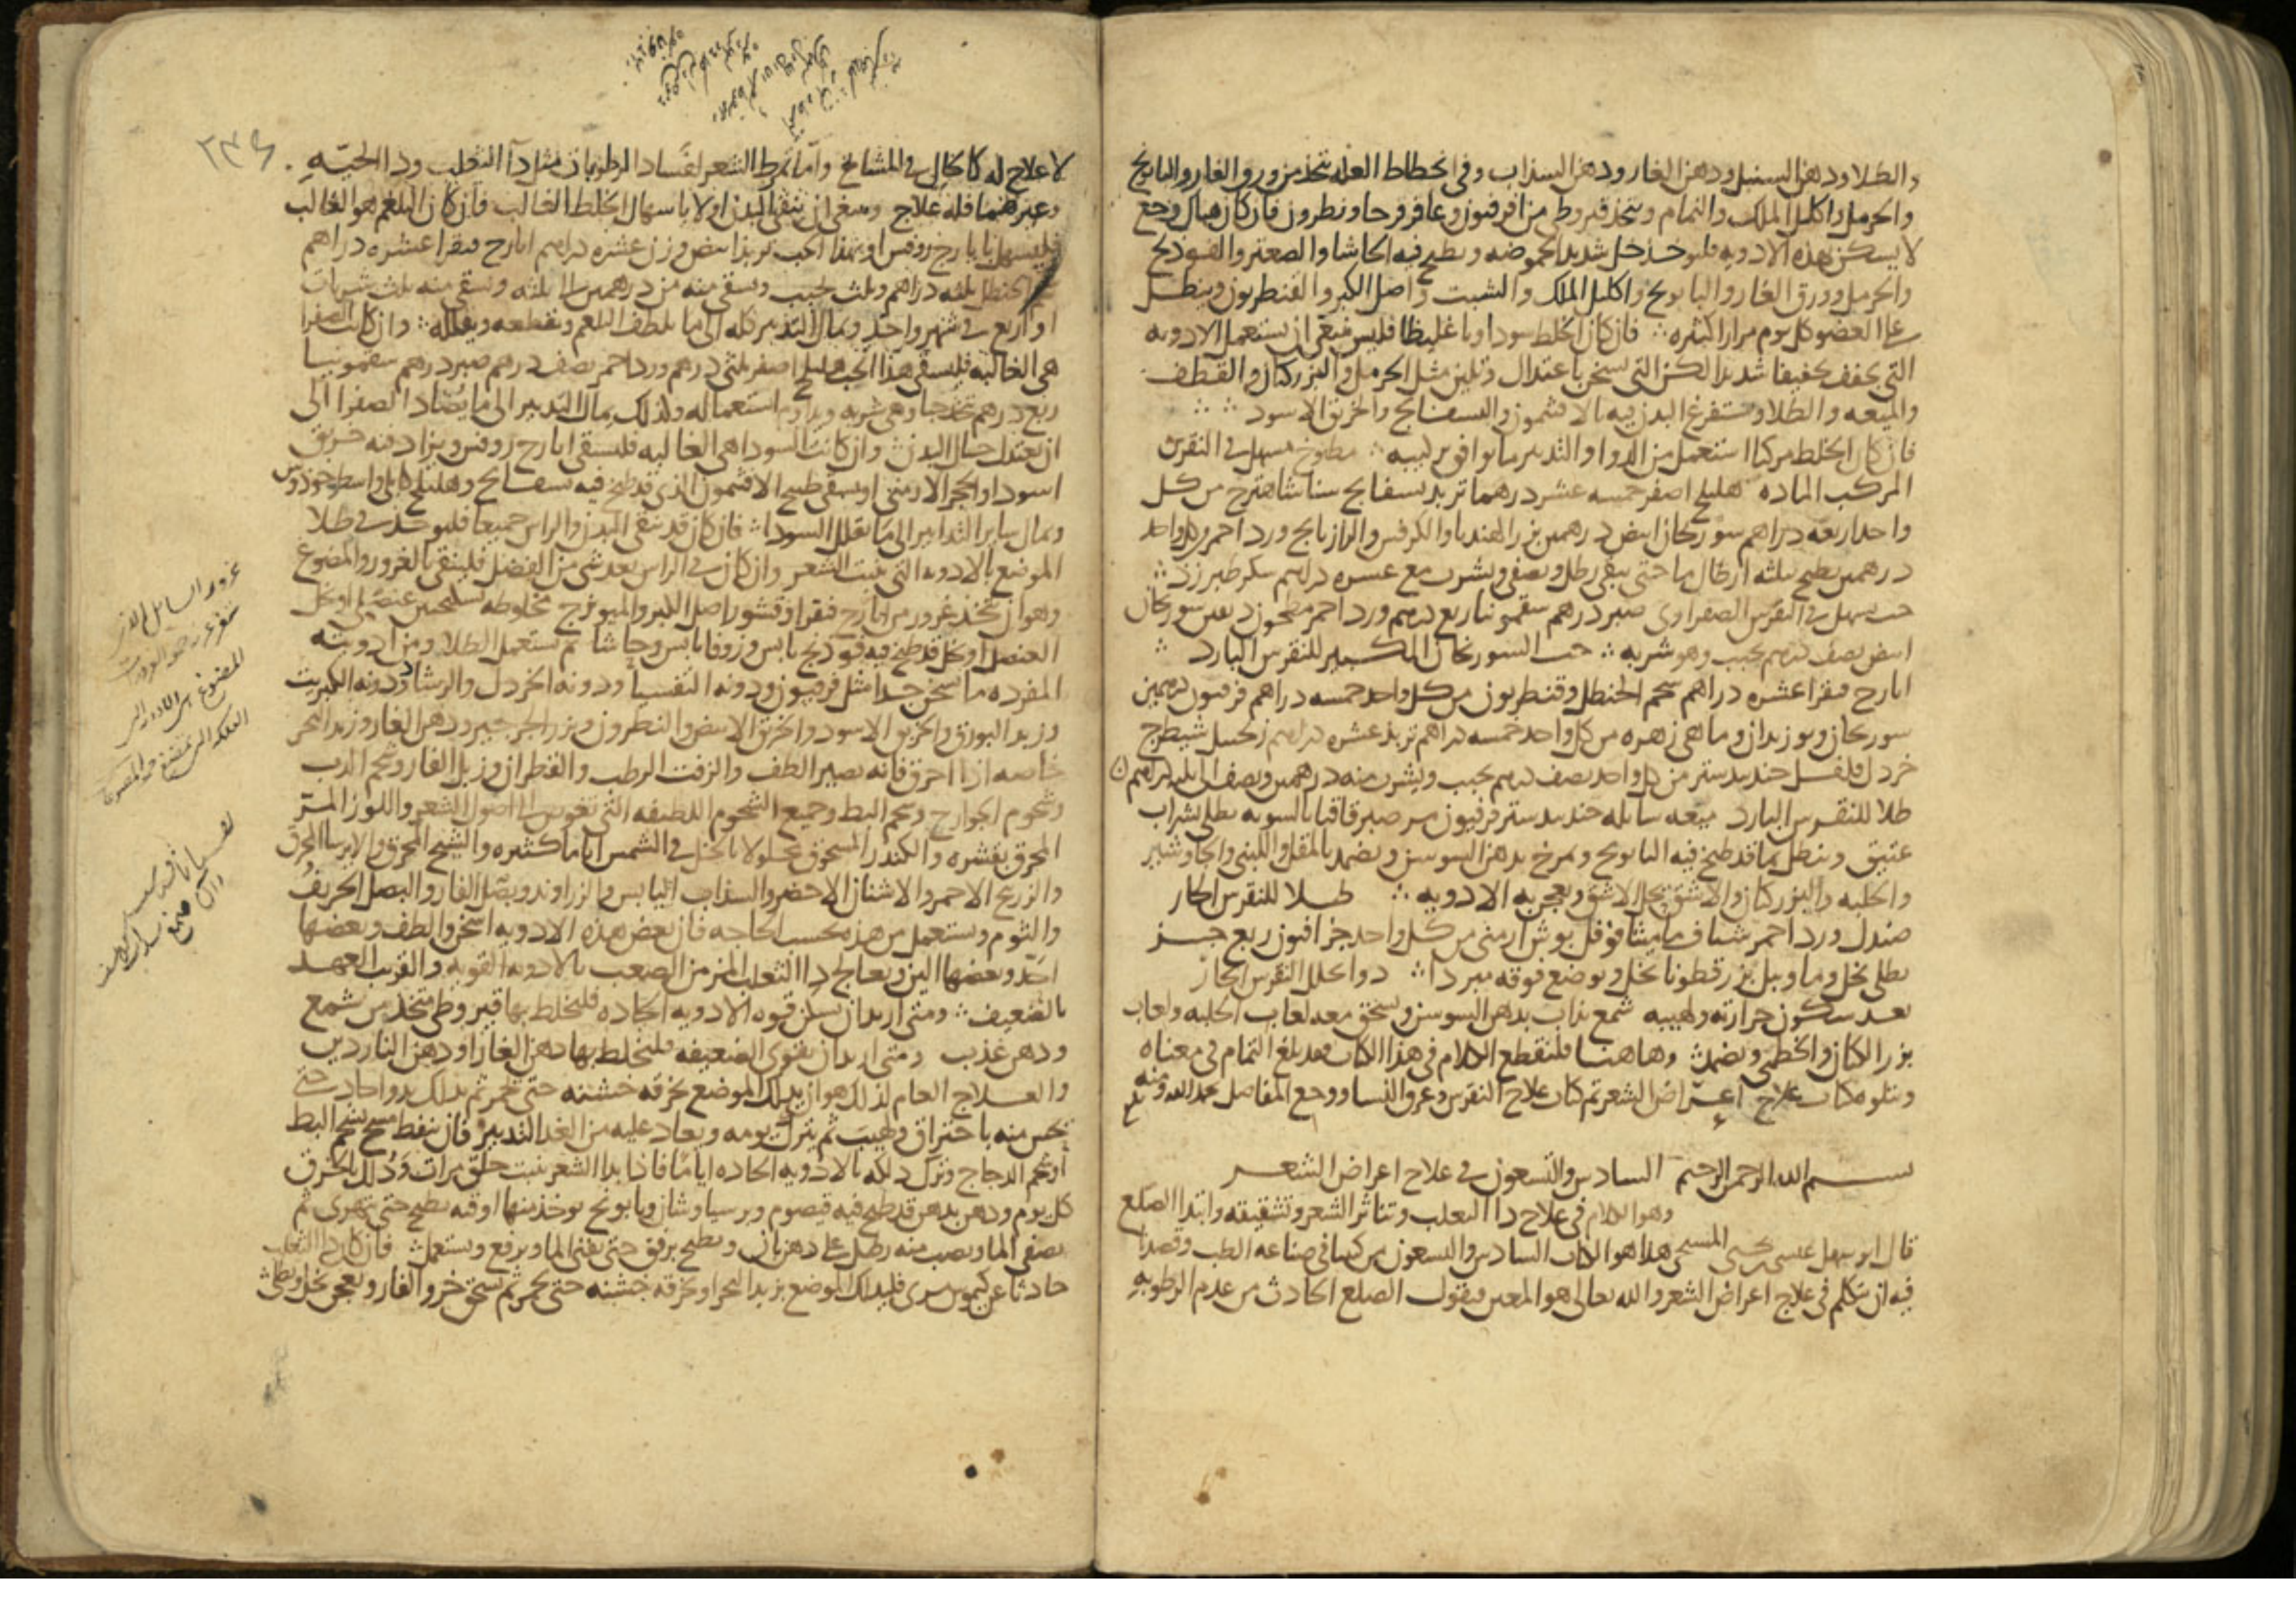 والطلا ودهن السنبل ودهن الغار ودهن السذاب وفي انحطاط العله تتخذ من ورق الغار والبابونج
والحرمل واكليل الملك والنمام ويتخذ قيروطي من افرفيون وعاقرقرحا ونطرون فان كان هناك وجع
لا يسكن بهذه الادويه فليوخذ خل شديد الحموضه ويطبخ فيه الحاشا والصعتر والفودنج
والحرمل وورق الغار والبابونج واكليل الملك والشبت واصل الكبر والقنطريون وينطل
على العضو كل يوم مرارا كثيره فان كان الخلط سوداويا غليظا فليس ينبغي ان يستعمل الادويه
التي تجفف تجفيفا شديدا لكن التي تسخن باعتدال وتلين مثل الحرمل والبزركتان والقطف
والميعه والطلا ويستفرغ البدن فيه بالافتيمون والبسفايج والخربق الاسود
فان كان الخلط مركبا استعمل من الدوا والتدبير ما يوافق تركيبه مطبوخ مسهل في النقرس
المركب الماده هليلج اصفر خمسه عشر درهما تربد بسفايج سنا شاهترج من كل
واحد اربعه دراهم سورنجان ابيض درهمين بزر الهندبا والكرفس والرازيانج ورد احمر من كل واحد
درهمين يطبخ بثلثه ارطال ما حتى يبقى رطل ويصفى ويشرب مع عشره دراهم سكر طبرزد
حب مسهل في النقرس الصفراوي صبر درهم سقمونيا ربع درهم ورد احمر مطحون سورنجان
ابيض نصف درهم يحبب وهو شربه حب السورنجان الكبير للنقرس البارد
ايارج فيقرا عشره دراهم شحم الحنظل وقنطريون من كل واحد خمسه دراهم فرفيون درهمين
سورنجان وبوزيدان وماهي زهره من كل واحد خمسه دراهم تربد عشره دراهم زنجبيل شيطرج
خردل فلفل جندبيدستر من كل واحد نصف درهم يحبب ويشرب منه درهمين ونصف الى ثلثه دراهم
طلا للنقرس البارد ميعه سايله جندبيدستر فرفيون مر صبر قاقيا بالسويه يطلى بشراب
عتيق وينطل بما قد طبخ فيه البابونج ويمرخ بدهن السوسن ويضمد بالمقل واللبنى والجاوشير
والحلبه والبزركتان والاشق يحل الاشق ويعجن به الادويه طلا للنقرس الحار
صندل ورد احمر شياف ماميثا فوفل بوش ارمني من كل واحد جز افيون ربع جز
يطلى بخل وما ويبل بزرقطونا بخل ويوضع فوقه مبردا دوا يحلل النقرس الحار
بعد سكون حرارته ولهيبه شمع يذاب بدهن السوسن ويسحق معه لعاب الحلبه ولعاب
بزر الكتان والخطمي ويضمد وهاهنا فلنقطع الكلام في هذا الكتاب فقد بلغ التمام في معناه
ونتلوه كتاب علاج اعراض الشعر تم كتاب علاج النقرس وعرق النسا ووجع المفاصل بحمد الله ومنه
بسم الله الرحمن الرحيم السادس والتسعون في علاج اعراض الشعر
وهو الكلام في علاج دا الثعلب وتناثر الشعر وتشقيقه وابتدا الصلع
قال ابو سهل عيسى بن يحيى المسيحي هذا هو الكتاب السادس والتسعون من كتبنا في صناعه الطب وقصدنا
فيه ان نتكلم في علاج اعراض الشعر والله تعالى هو المعين فنقول الصلع الحادث من عدم الرطوبه
٢٣٤
لا علاج له كالحال في المشايخ واما تمرط الشعر لفساد الرطوبات مثل دآ الثعلب ودا الحيّه
وغيرهما فله علاج وينبغي ان ينقى البدن اولا باسهال الخلط الغالب فان كان البلغم هو الغالب
فليسهل بايارج روفس او بهذا الحب تربد ابيض وزن عشره دراهم ايارج فيقرا عشره دراهم
شحم الحنظل ثلثه دراهم وثلث يحبب ويسقى منه من درهمين الى ثلثه ويسقى منه ثلث شربات
او اربع في شهر واحد ويمال التدبير كله الى ما يلطف البلغم ويقطعه ويقلله وان كانت الصفرا
هي الغالبه فليسقى هذا الحب هليلج اصفر ثلثي درهم ورد احمر نصف درهم صبر درهم سقمونيا
ربع درهم يتخذ حبا وهي شربه ويداوم استعماله وكذلك يمال التدبير الى ما يضاد الصفرا الى
ان يعتدل حال البدن وان كانت السودا هي الغالبه فليسقى ايارج روفس ويزاد فيه خربق
اسود او الحجر الارمني او يسقى طبيخ الافتيمون الذي قد طبخ فيه بسفايج وهليلج كابلي واسطوخودوس
ويمال ساير التدابير الى ما يقلل السودا فان كان قد نقي البدن والراس جميعا فليوخذ في طلا
الموضع بالادويه التي تنبت الشعر وان كان في الراس بعد شي من الفضل فلينقى بالغرور والمضوغ
وهو ان يتخذ غرور من ايارج فيقرا وقشور اصل الكبر والميوزج مخلوطه بسكنجبين عنصلي او بخل
العنصل او بخل قد طبخ فيه فودنج يابس وزوفا يابس وحاشا ثم يستعمل الطلا ومن ادويته
المفرده ما يسخن جدا مثل فرفيون ودونه التفسيا ودونه الخردل والرشاد ودونه الكبريت
وزبد البورق والخربق الاسود والخربق الابيض والنطرون وبزر الجرجير ودهن الغار وزبد البحر
خاصه اذا احرق فانه يصير الطف والزفت الرطب والقطران وزبل الفار وشحم الدب
وشحوم الجوارح وشحم البط وجميع الشحوم اللطيفه التي تغوص الى اصول الشعر واللوز المرّ
المحرق بقشره والكندر المسحوق محلولا بالخل في الشمس اياما كثيره والشيح المحرق والايرسا المحرق
والزرنيخ الاحمر والاشنان الاخضر والسذاب اليابس والزراوند وبصل الفار والبصل الحريف
والثوم ويستعمل من هذه بحسب الحاجه فان بعض هذه الادويه اسخن والطف وبعضها
احدّ وبعضها الين ويعالج دا الثعلب المزمن الصعب بالادويه القويه والقريب العهد
بالضعيف ومتى اريد ان تسكن قوه الادويه الحاده فليخلط بها قيروطي متخذ من شمع
ودهن عذب ومتى اريد ان يقوى الضعيفه فليخلط بها دهن الغار او دهن الناردين
والعلاج العام لذلك هو ان يدلك الموضع بخرقه خشنه حتى يحمر ثم يدلك بدوا حاد حتى
يحس منه باحتراق ولهيب ثم يترك يومه ويعاد عليه من الغد التدبير فان تنفط مسح بشحم البط
او شحم الدجاج وترك دلكه بالادويه الحاده اياما فاذا بدا الشعر ينبت حلق مرات ودلك بالخرق
كل يوم ودهن بدهن قد طبخ فيه قيصوم وبرسياوشان وبابونج يوخذ منها اوقيه يطبخ حتى يتهرى ثم
يصفى الما ويصب منه رطل على دهن بان ويطبخ برفق حتى يفنى الما ويرفع ويستعمل فان كان دا الثعلب
حادثا عن كيموس مري فليدلك الموضع بزبد البحر او بخرقه خشنه حتى يحمر ثم يسحق خرو الفار ويعجن بخل ويطلى